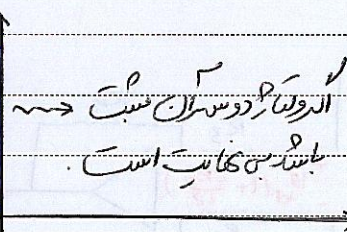 اگر ولتاژ دو سر آن مثبت
باشد بی نهایت است.